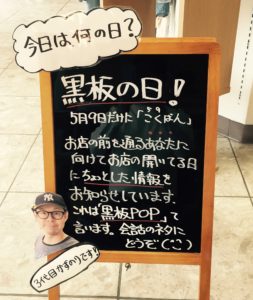 今日は何の日?
黒板の日!
5月9日だけに「こくばん」
5 9
お店の前を通るあなたに
向けてお店の開いてる日
にちょっとした情報を
お知らせしています。
これは「黒板POP」って
言います。会話のネタに
どうぞ(¨)
3代目かずのりです!